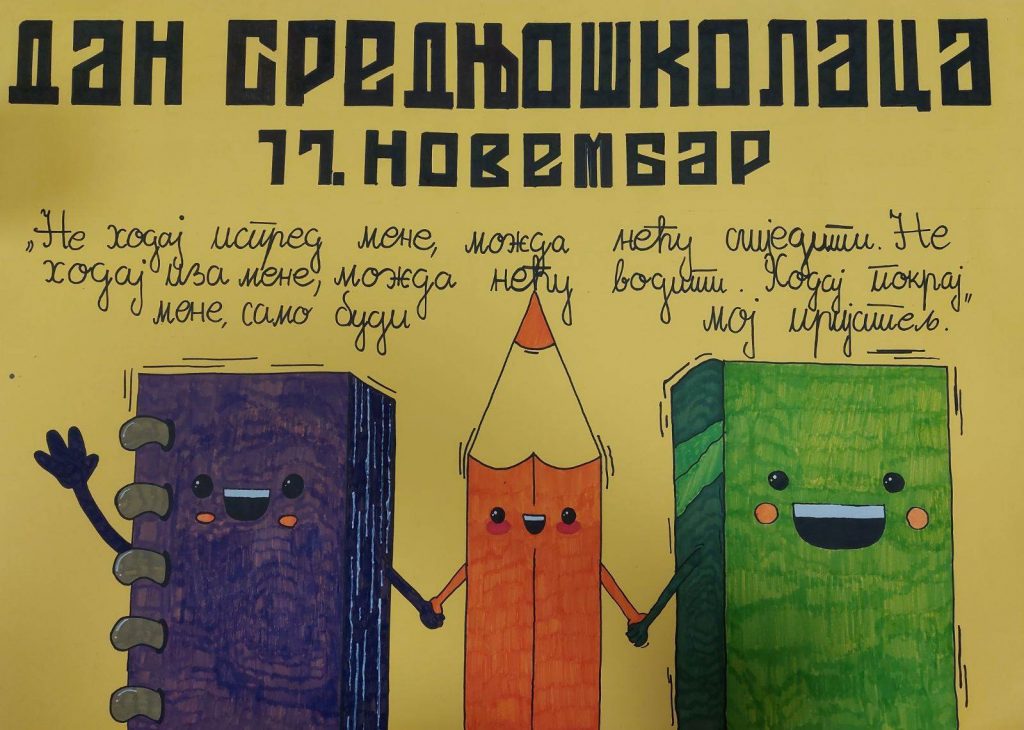 ДАН СРЕДЊОШКОЛАЦА
17. НОВЕМБАР
„Не ходај испред мене, можда нећу слиједити. Не
ходај иза мене, можда нећу водити. Ходај покрај
мене, само буди мој пријатељ.”